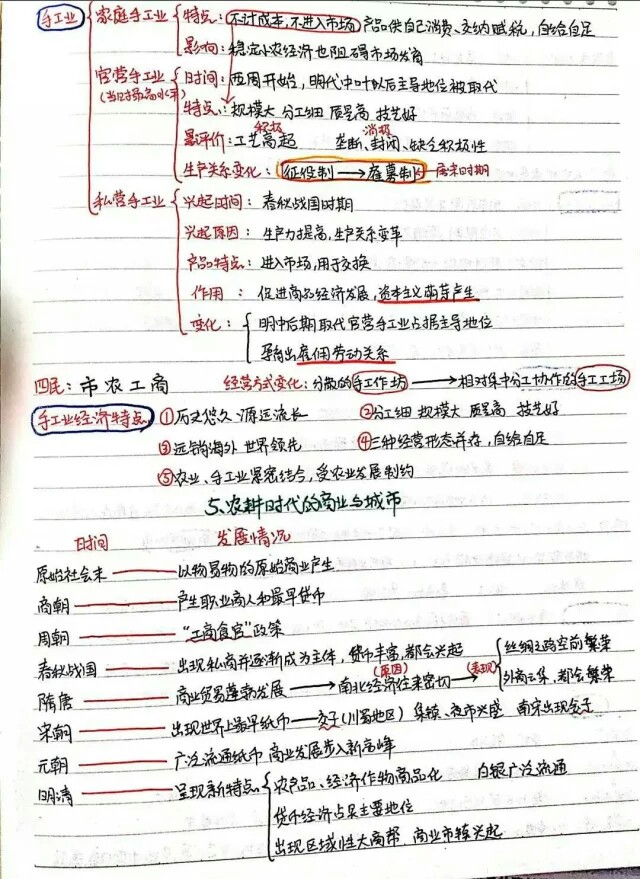 手工业 家庭手工业 特点：不计成本，不进入市场，产品供自己消费、交纳赋税，自给自足
影响：稳定小农经济也阻碍市场发育
官营手工业 时间：西周开始，明代中叶以后主导地位被取代
(当时最高水平) 特点：规模大 分工细 质量高 技艺好
积极 消极
评价：工艺高超 垄断、封闭、缺乏积极性
生产关系变化：征役制→雇募制←唐宋时期
私营手工业 兴起时间：春秋战国时期
兴起原因：生产力提高，生产关系变革
产品特点：进入市场，用于交换
作用：促进商品经济发展，资本主义萌芽产生
变化：明中后期取代官营手工业占据主导地位
导向出雇佣劳动关系
四民：市农工商 经营方式变化：分散的手工作坊→相对集中分工协作的手工工场
手工业经济特点 ①历史悠久 源远流长 ②分工细 规模大 质量高 技艺好
③远销海外 世界领先 ④三种经营形态并存，自给自足
⑤农业、手工业紧密结合，受农业发展制约
5、农耕时代的商业与城市
时间 发展情况
原始社会末——以物易物的原始商业产生
商朝——产生职业商人和最早货币
周朝——“工商食官”政策
春秋战国——出现私商并逐渐成为主体，货币丰富，都会兴起
隋唐——商业贸易蓬勃发展→(原因)南北经济往来密切→(表现) 丝绸之路空前繁荣
外商云集，都会繁荣
宋朝——出现世界上最早纸币——交子(川蜀地区) 集镇、夜市兴盛 南宋出现会子
元朝——广泛流通纸币 商业发展步入新高峰
明清——呈现新特点 农产品、经济作物商品化 白银广泛流通
货币经济占主要地位
出现区域性大商帮 商业市镇兴起